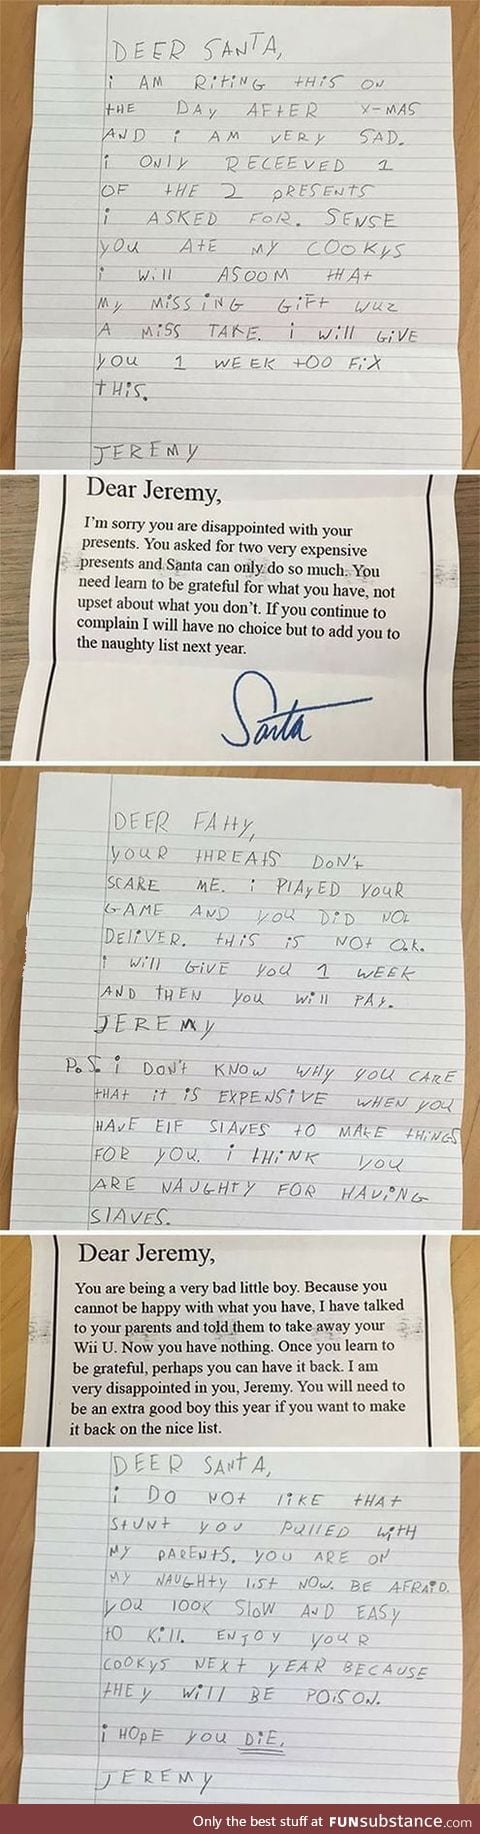 DEER SANTA,
i AM RiTiNG tHiS ON
tHE DAY AFTER X-MAS
AND i AM VERY SAD.
i ONLY RECEEVED 1
OF tHE 2 PRESENTS
i ASKED FOR. SENSE
YOU AtE MY COOKYS
i Will ASOOM tHAt
MY MiSSiNG GiFt WUZ
A MiSS TAKE. i Will GiVE
YOU 1 WEEK tOO FiX
tHiS.
JEREMY
Dear Jeremy,
I'm sorry you are disappointed with your
presents. You asked for two very expensive
presents and Santa can only do so much. You
need learn to be grateful for what you have, not
upset about what you don't. If you continue to
complain I will have no choice but to add you to
the naughty list next year.
Santa
DEER FAttY,
YOUR tHREAtS DoN't
SCARE ME. i PlAYED YOUR
GAME AND YOU DiD NOt
DEliVER. tHiS iS NOt O.K.
i Will GiVE YOU 1 WEEK
AND tHEN YOU Will PAY.
JEREMY
P.S. i DON't KNOW WHY YOU CARE
tHAt it iS EXPENSiVE WHEN YOU
HAVE ElF SlAVES tO MAKE tHiNGS
FOR YOU. i tHiNK YOU
ARE NAUGHtY FOR HAViNG
SlAVES.
Dear Jeremy,
You are being a very bad little boy. Because you
cannot be happy with what you have, I have talked
to your parents and told them to take away your
Wii U. Now you have nothing. Once you learn to
be grateful, perhaps you can have it back. I am
very disappointed in you, Jeremy. You will need to
be an extra good boy this year if you want to make
it back on the nice list.
DEER SANtA,
i DO NOt liKE tHAt
StUNt YOU PUllED WitH
MY PARENtS. YOU ARE ON
MY NAUGHtY liSt NOW. BE AFRAiD.
YOU lOOK SlOW AND EASY
tO Kill. ENJOY YOUR
COOKYS NEXt YEAR BECAUSE
tHEY Will BE POiSON.
i HOPE YOU DiE.
JEREMY
Only the best stuff at FUNsubstance.com